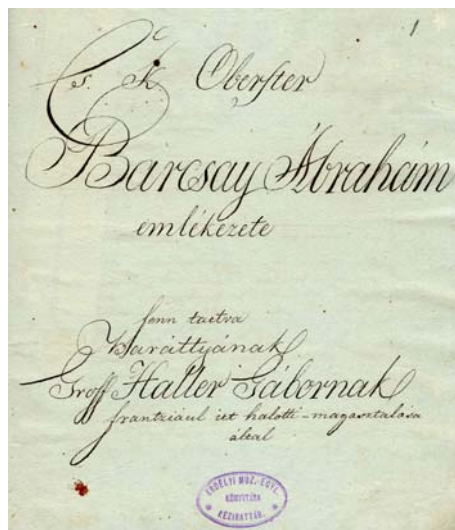 1
Cs. K. Oberster
Barcsay Ábrahám
emlékezete
fenn tartva
Baráttyának
Groff Haller Gábornak
frantziául írt halotti-magasztalása
által
ERDÉLYI MUZ.-EGYL.
KÖNYVTÁRA
KÉZIRATTÁR.